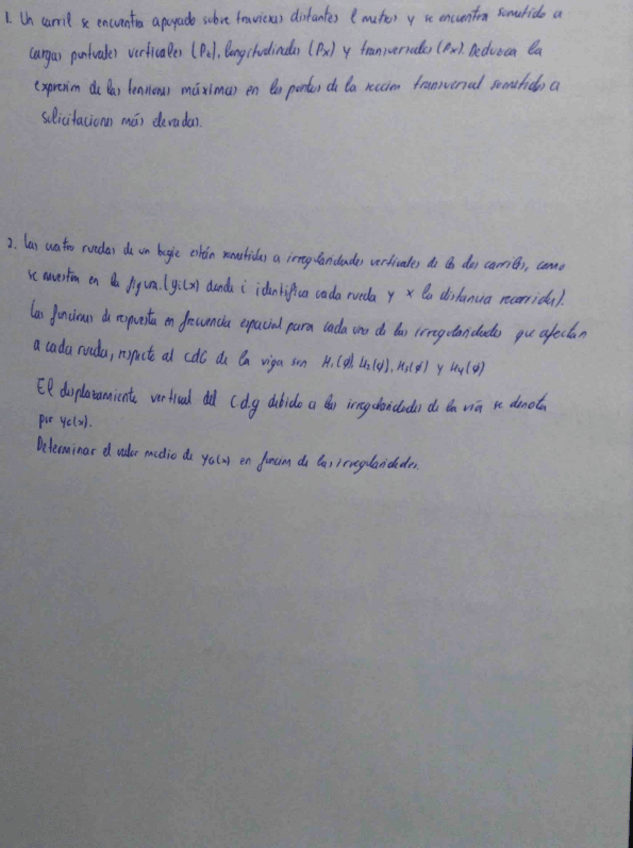 1. Un carril se encuentra apoyado sobre traviesas distantes l metros y se encuentra sometido a
cargas puntuales verticales (Pz), longitudinales (Px) y transversales (Px). Deduzca la
expresión de las tensiones máximas en los puntos de la sección transversal sometidos a
solicitaciones más elevadas.
2. Las cuatro ruedas de un bogie están sometidas a irregularidades verticales de los dos carriles, como
se muestra en la figura. (yi(x) donde i identifica cada rueda y x la distancia recorrida).
Las funciones de respuesta en frecuencia espacial para cada una de las irregularidades que afectan
a cada rueda, respecto al CDG de la viga son H1(ϕ), H2(ϕ), H3(ϕ) y H4(ϕ)
El desplazamiento vertical del c.d.g debido a las irregularidades de la vía se denota
por yc(x).
Determinar el valor medio de yG(x) en función de las irregularidades.